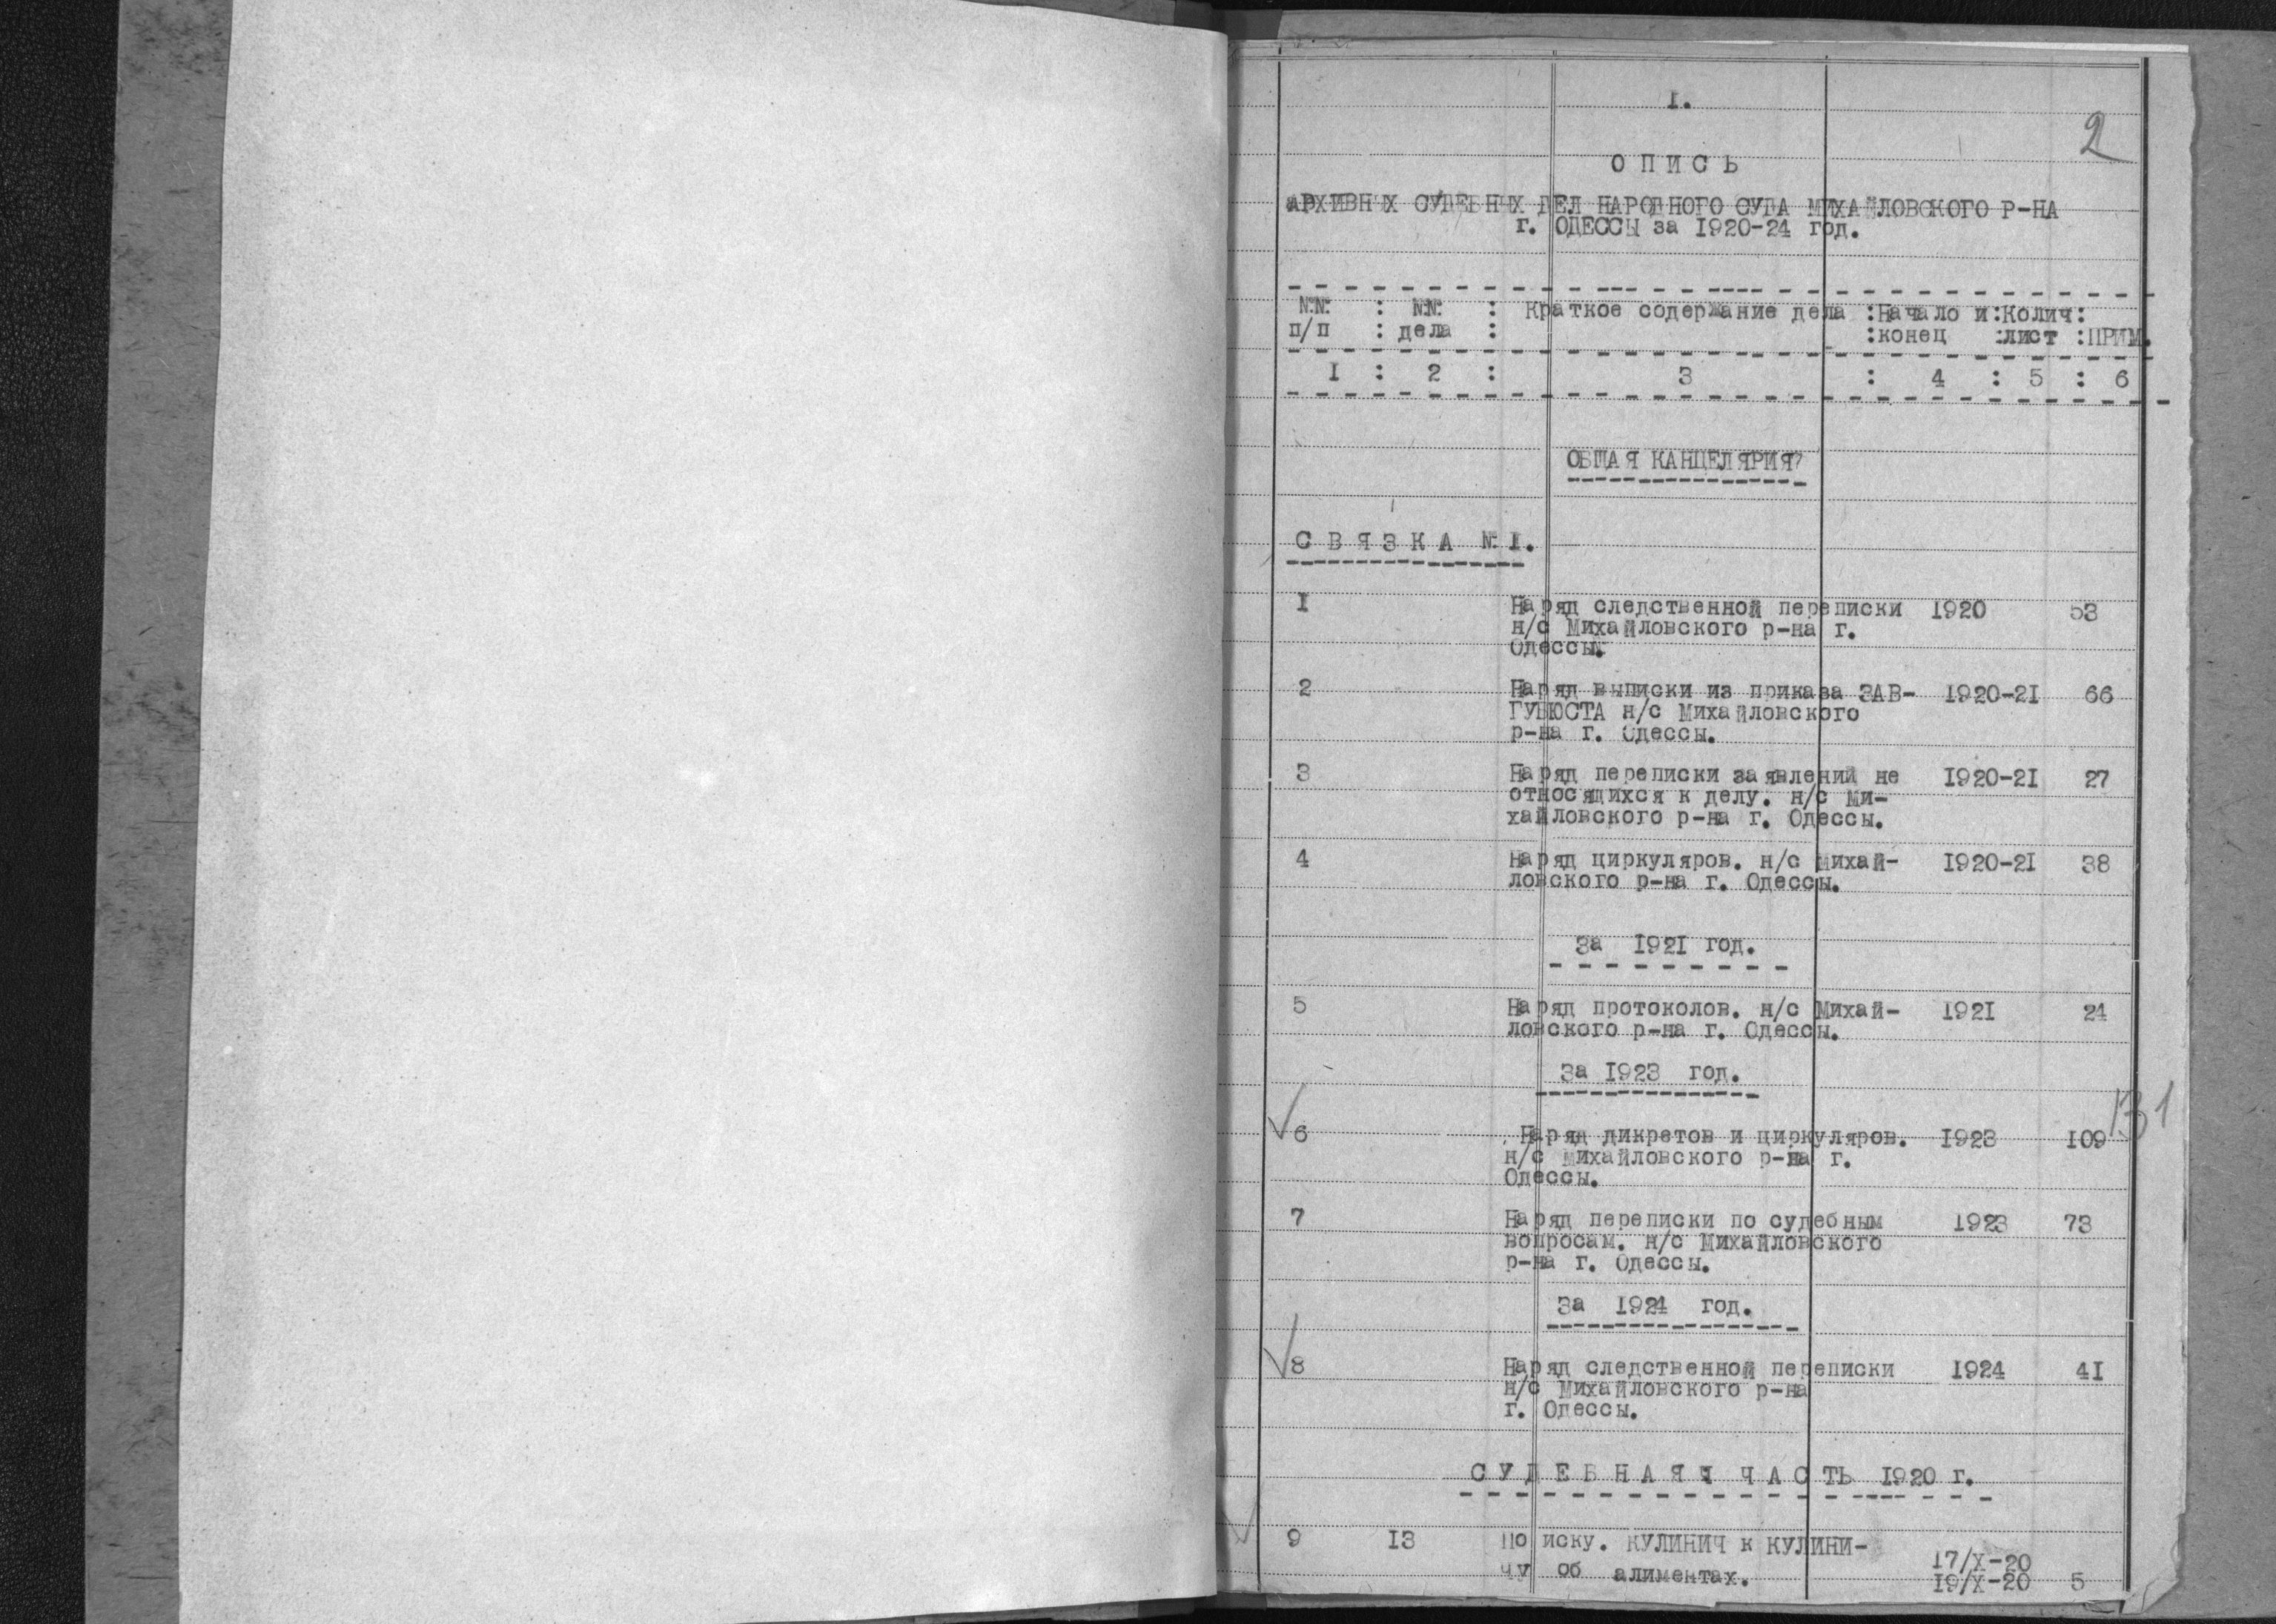 I.
2
О П И С Ь
АРХИВНЫХ СУДЕБНЫХ ДЕЛ НАРОДНОГО СУДА МИХАЙЛОВСКОГО Р-НА
г. ОДЕССЫ за 1920-24 год.
№№ : №№ : Краткое содержание дела :Начало и:Колич:
п/п : дела : :конец :лист :ПРИМ.
I : 2 : 3 : 4 : 5 : 6
ОБЩАЯ КАНЦЕЛЯРИЯ?
С В Я З К А № I.
I Наряд следственной переписки 1920 53
н/с Михайловского р-на г.
Одессы.
2 Наряд выписки из приказа ЗАВ- 1920-21 66
ГУБЮСТА н/с Михайловского
р-на г. Одессы.
3 Наряд переписки заявлений не 1920-21 27
относящихся к делу. н/с Ми-
хайловского р-на г. Одессы.
4 Наряд циркуляров. н/с Михай- 1920-21 38
ловского р-на г. Одессы.
За 1921 год.
5 Наряд протоколов. н/с Михай- 1921 24
ловского р-на г. Одессы.
За 1923 год.
131
√6 Наряд дикретов и циркуляров. 1923 109
н/с Михайловского р-на г.
Одессы.
7 Наряд переписки по судебным 1923 73
вопросам. н/с Михайловского
р-на г. Одессы.
За 1924 год.
√8 Наряд следственной переписки 1924 41
н/с Михайловского р-на
г. Одессы.
С У Д Е Б Н А Я Ч А С Т Ь 1920 г.
√ 9 13 По иску. КУЛИНИЧ к КУЛИНИ-
17/X-20
чу об алиментах. 19/X-20 5